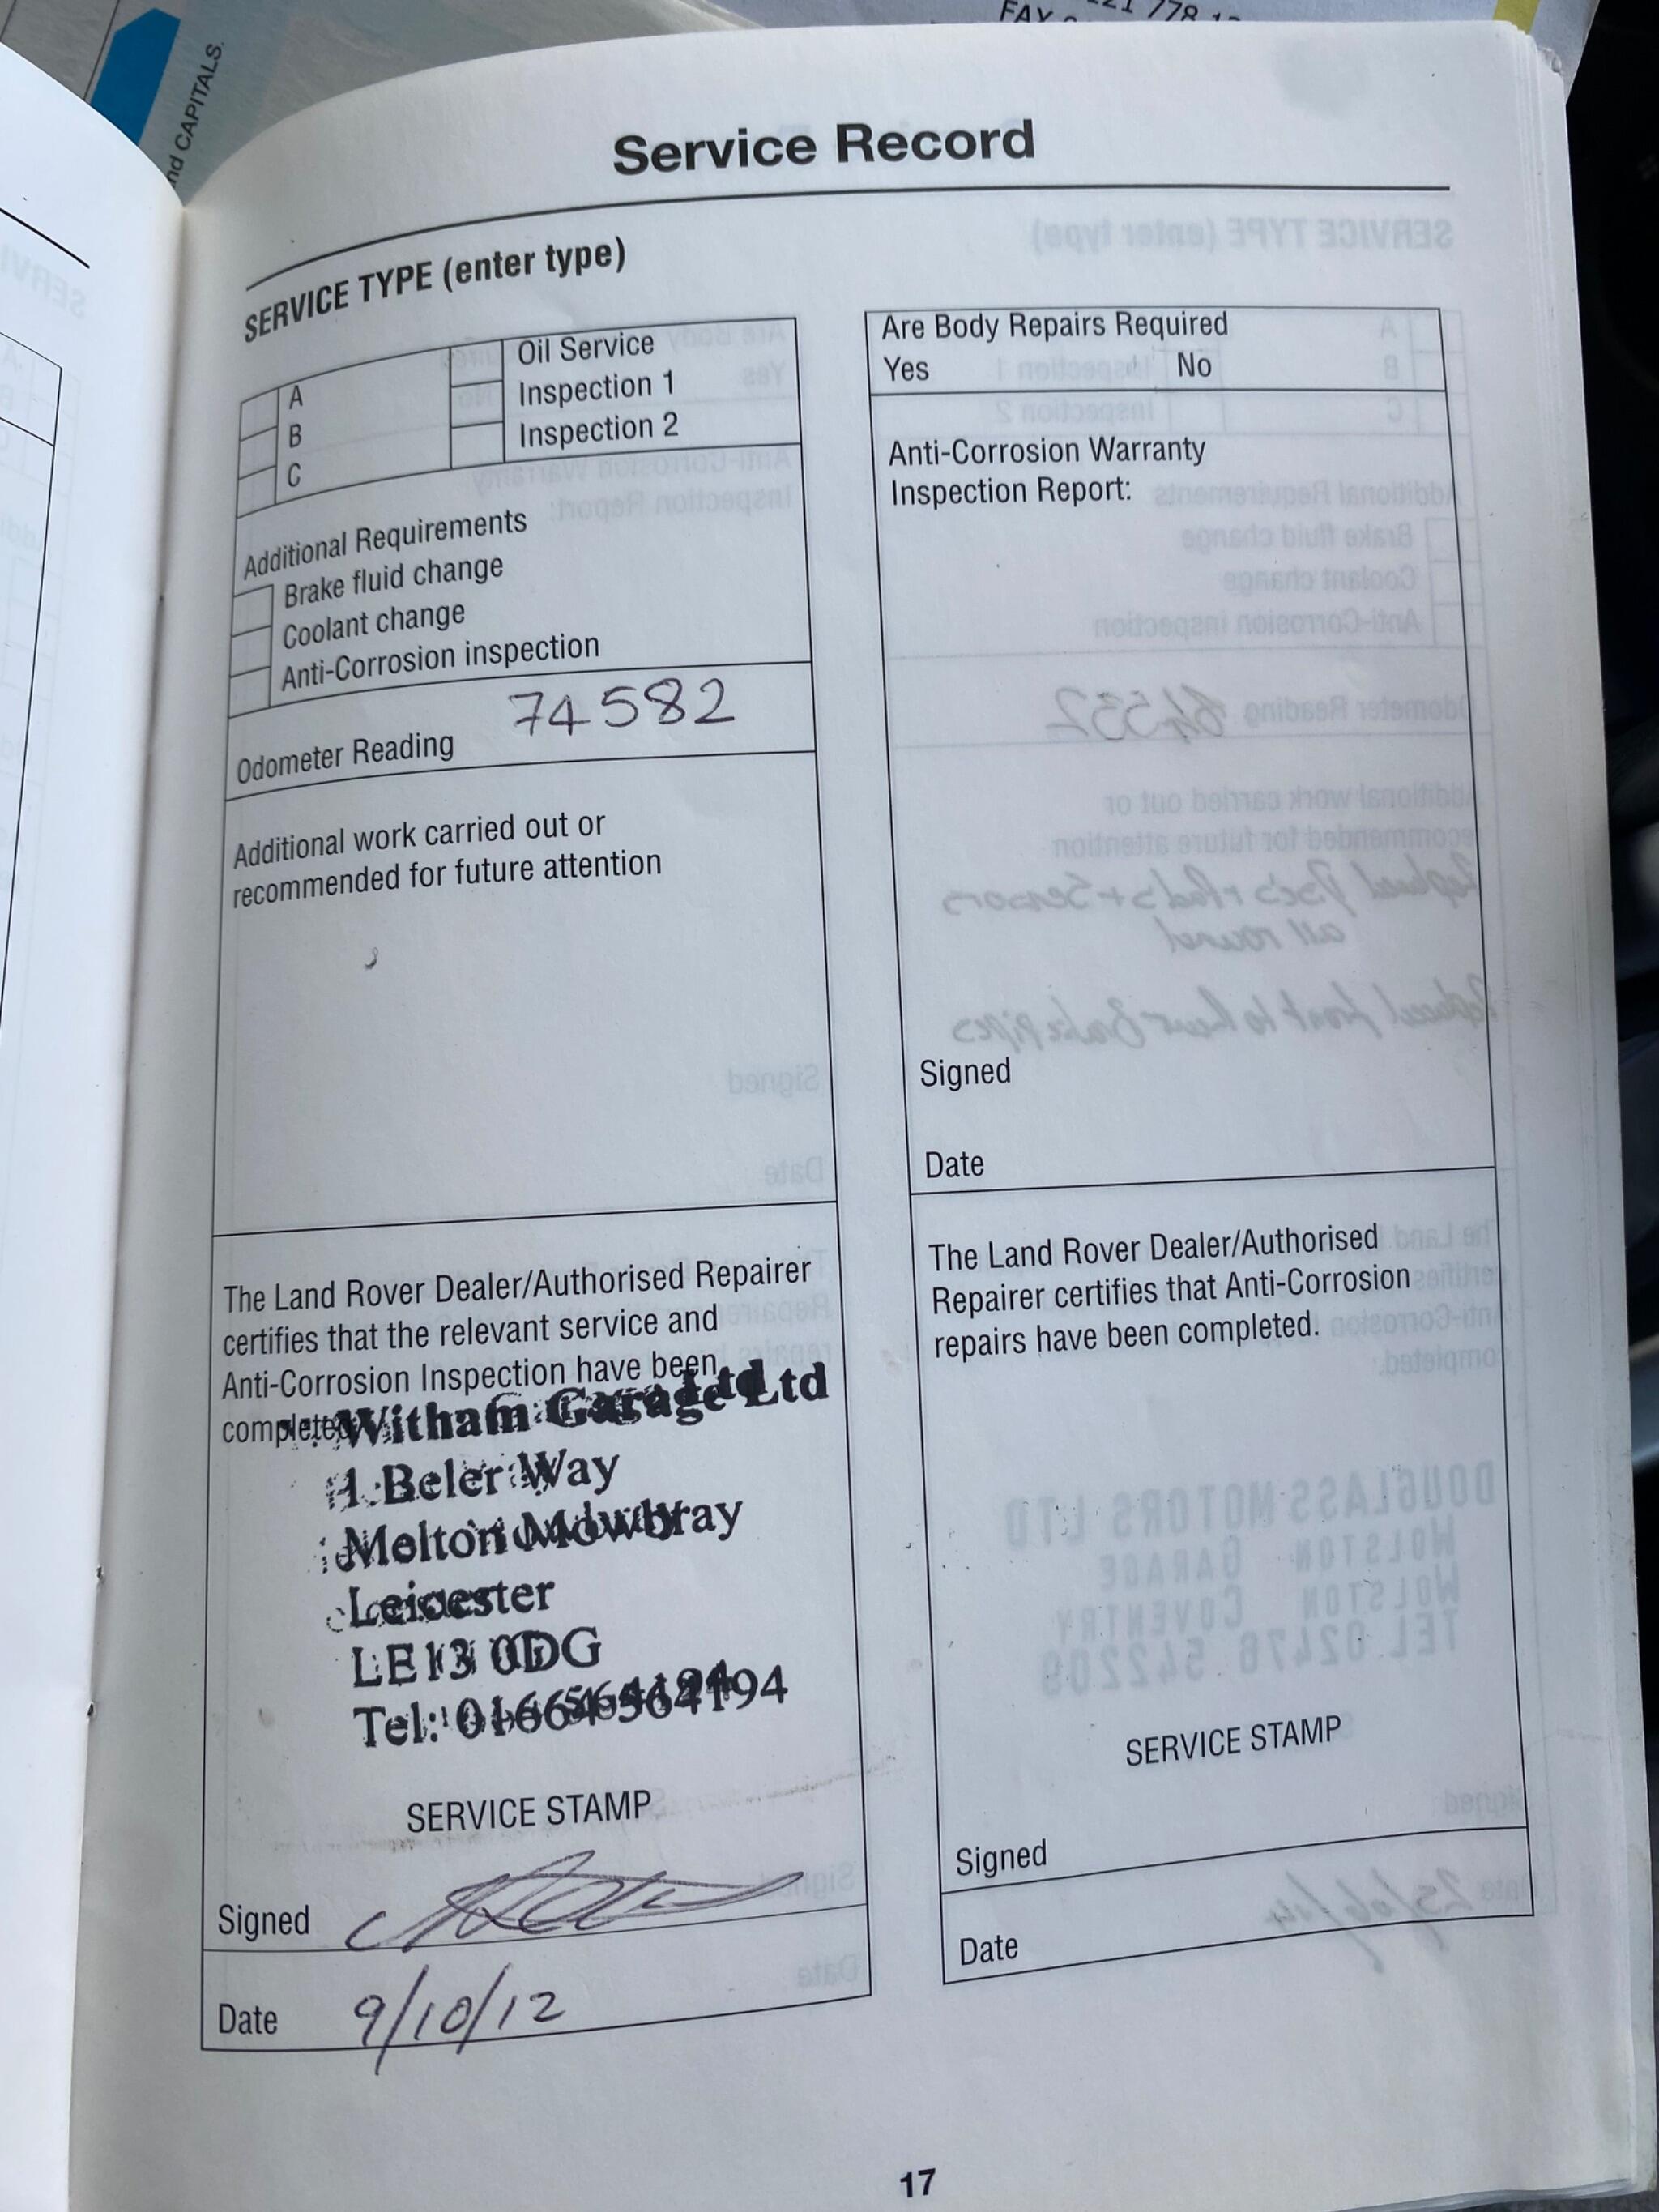 nd CAPITALS.
Service Record
SERVICE TYPE (enter type)
A
B
C
Oil Service
Inspection 1
Inspection 2
Additional Requirements
Brake fluid change
Coolant change
Anti-Corrosion inspection
Odometer Reading 74582
Additional work carried out or
recommended for future attention
The Land Rover Dealer/Authorised Repairer
certifies that the relevant service and
Anti-Corrosion Inspection have been
completed
Witham Garage Ltd
1 Beler Way
Melton Mowbray
Leicester
LE13 0DG
Tel: 01664 564194
SERVICE STAMP
Signed
Date 9/10/12
Are Body Repairs Required
Yes No
Anti-Corrosion Warranty
Inspection Report:
Signed
Date
The Land Rover Dealer/Authorised
Repairer certifies that Anti-Corrosion
repairs have been completed.
SERVICE STAMP
Signed
Date
17